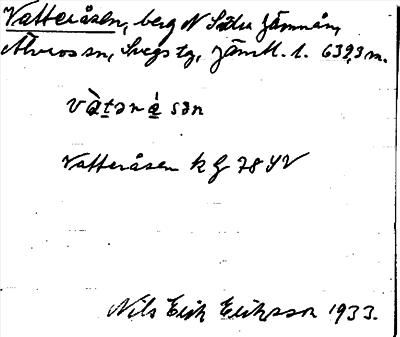 Vatteråsen, berg N Sätra Jämnån,
Älvros sn, Svegs tg, Jämtl. l. 639,3 m.
vàtərásən
Vatteråsen k G 78 SV
Nils Erik Eriksson 1933.